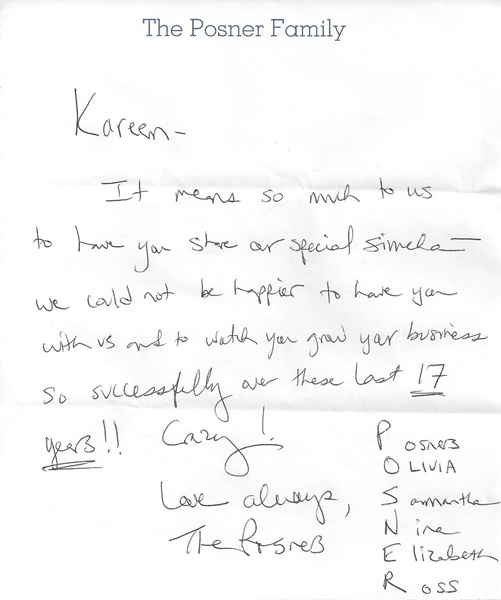 The Posner Family
Kareen-
It means so much to us
to have you share our special simcha-
we could not be happier to have you
with us and to watch you grow your business
so successfully over these last 17
years!! Crazy!
Love always,
The Posners
Posners
OLIVIA
Samantha
Nina
Elizabeth
Ross